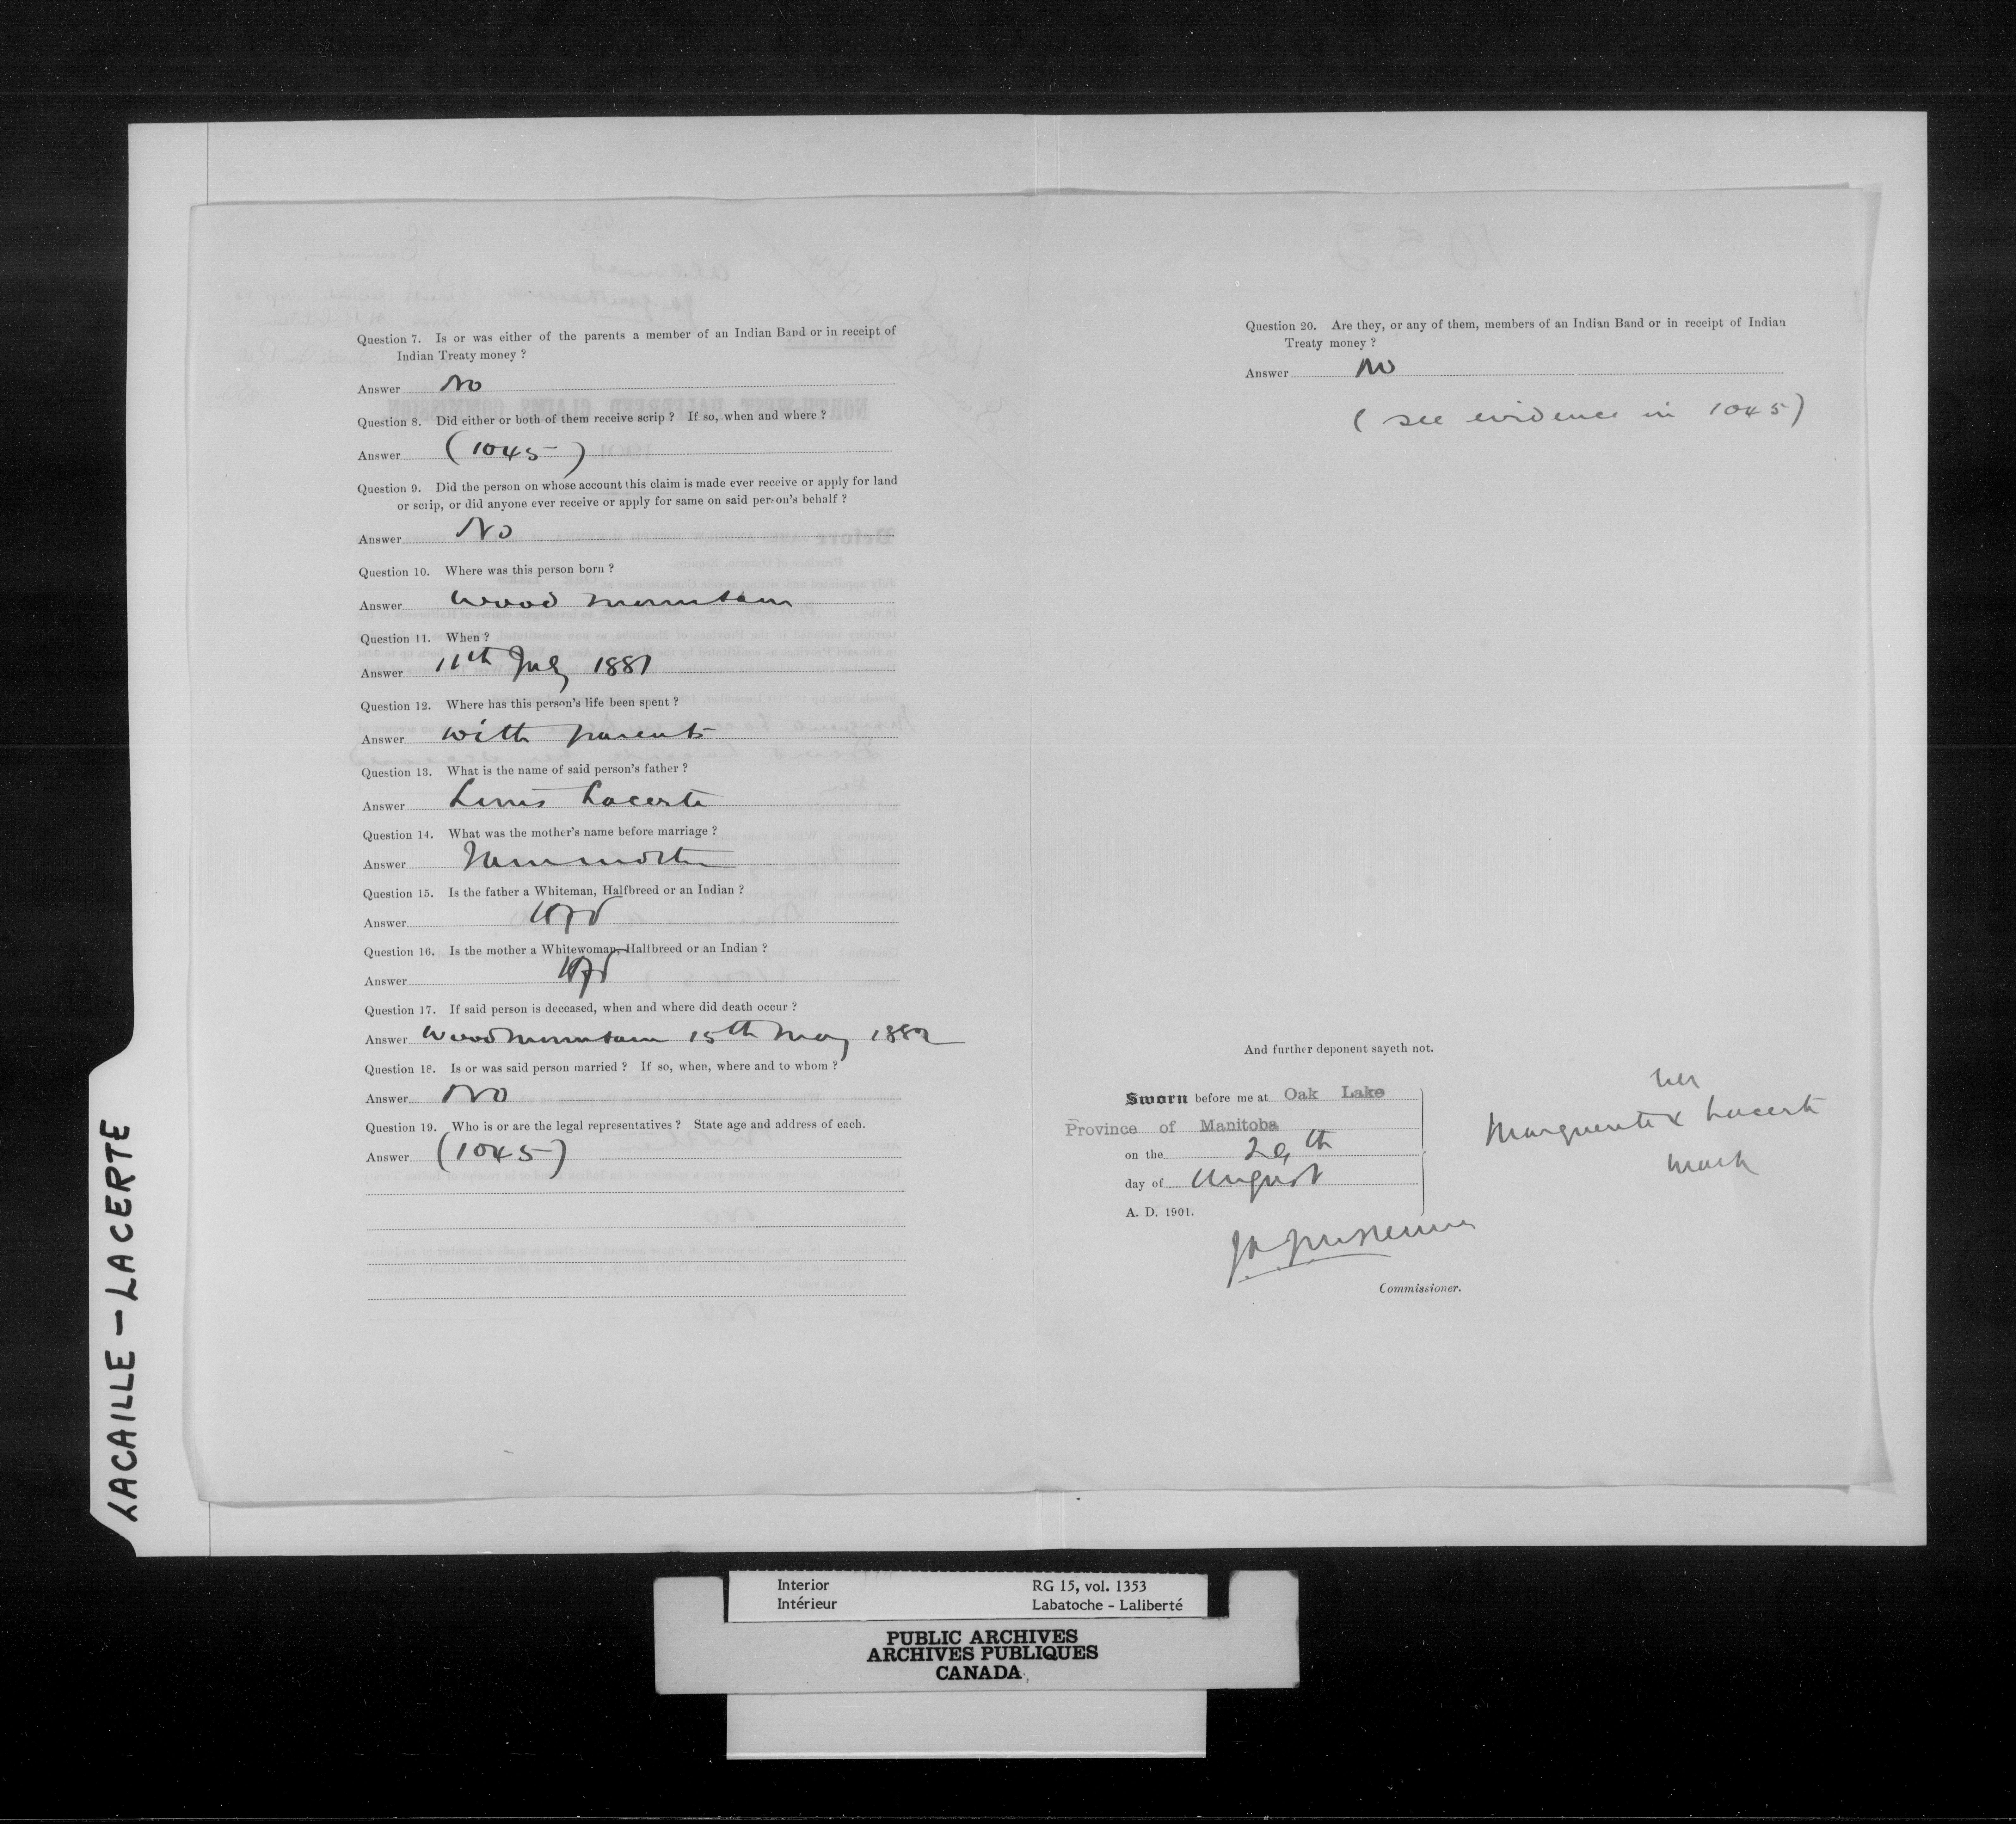 Question 7. Is or was either of the parents a member of an Indian Band or in receipt of
Indian Treaty money ?
Answer No
Question 8. Did either or both of them receive scrip ? If so, when and where ?
Answer (1045)
Question 9. Did the person on whose account this claim is made ever receive or apply for land
or scrip, or did anyone ever receive or apply for same on said person's behalf ?
Answer No
Question 10. Where was this person born ?
Answer Wood Mountain
Question 11. When ?
Answer 11th July 1881
Question 12. Where has this person's life been spent ?
Answer with parents
Question 13. What is the name of said person's father ?
Answer Louis Lacerte
Question 14. What was the mother's name before marriage ?
Answer
Question 15. Is the father a Whiteman, Halfbreed or an Indian ?
Answer
Question 16. Is the mother a Whitewoman, Halfbreed or an Indian ?
Answer
Question 17. If said person is deceased, when and where did death occur ?
Answer Wood Mountain 15th May 1882
Question 18. Is or was said person married ? If so, when, where and to whom ?
Answer No
Question 19. Who is or are the legal representatives ? State age and address of each.
Answer (1045)
Question 20. Are they, or any of them, members of an Indian Band or in receipt of Indian
Treaty money ?
Answer No
(see evidence in 1045)
And further deponent sayeth not.
Sworn before me at Oak Lake
Province of Manitoba
on the 29th
day of August
A. D. 1901.
her
Marguerite x Lacerte
mark
Commissioner.
LACAILLE - LACERTE
Interior
Intérieur
RG 15, vol. 1353
Labatoche - Laliberté
PUBLIC ARCHIVES
ARCHIVES PUBLIQUES
CANADA